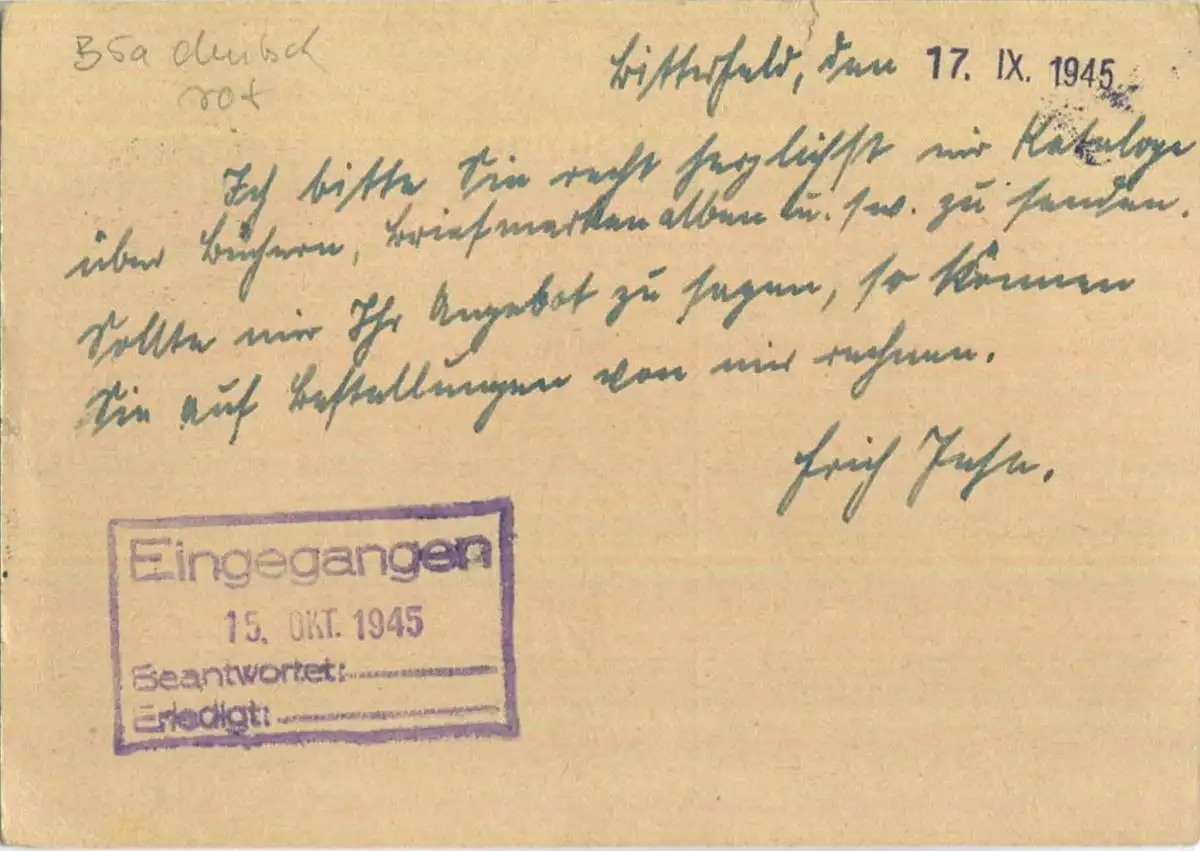 B5a deutsch
rot
Bitterfeld, den 17. IX. 1945
Ich bitte Sie recht herzlichst mir Kataloge
über Büchern, Briefmarkenalben u. sw. zu senden.
Sollte mir Ihr Angebot zu sagen, so können
Sie auf Bestellungen von mir rechnen.
Erich Jahn.
Eingegangen
15. OKT. 1945
Beantwortet:
Erledigt: